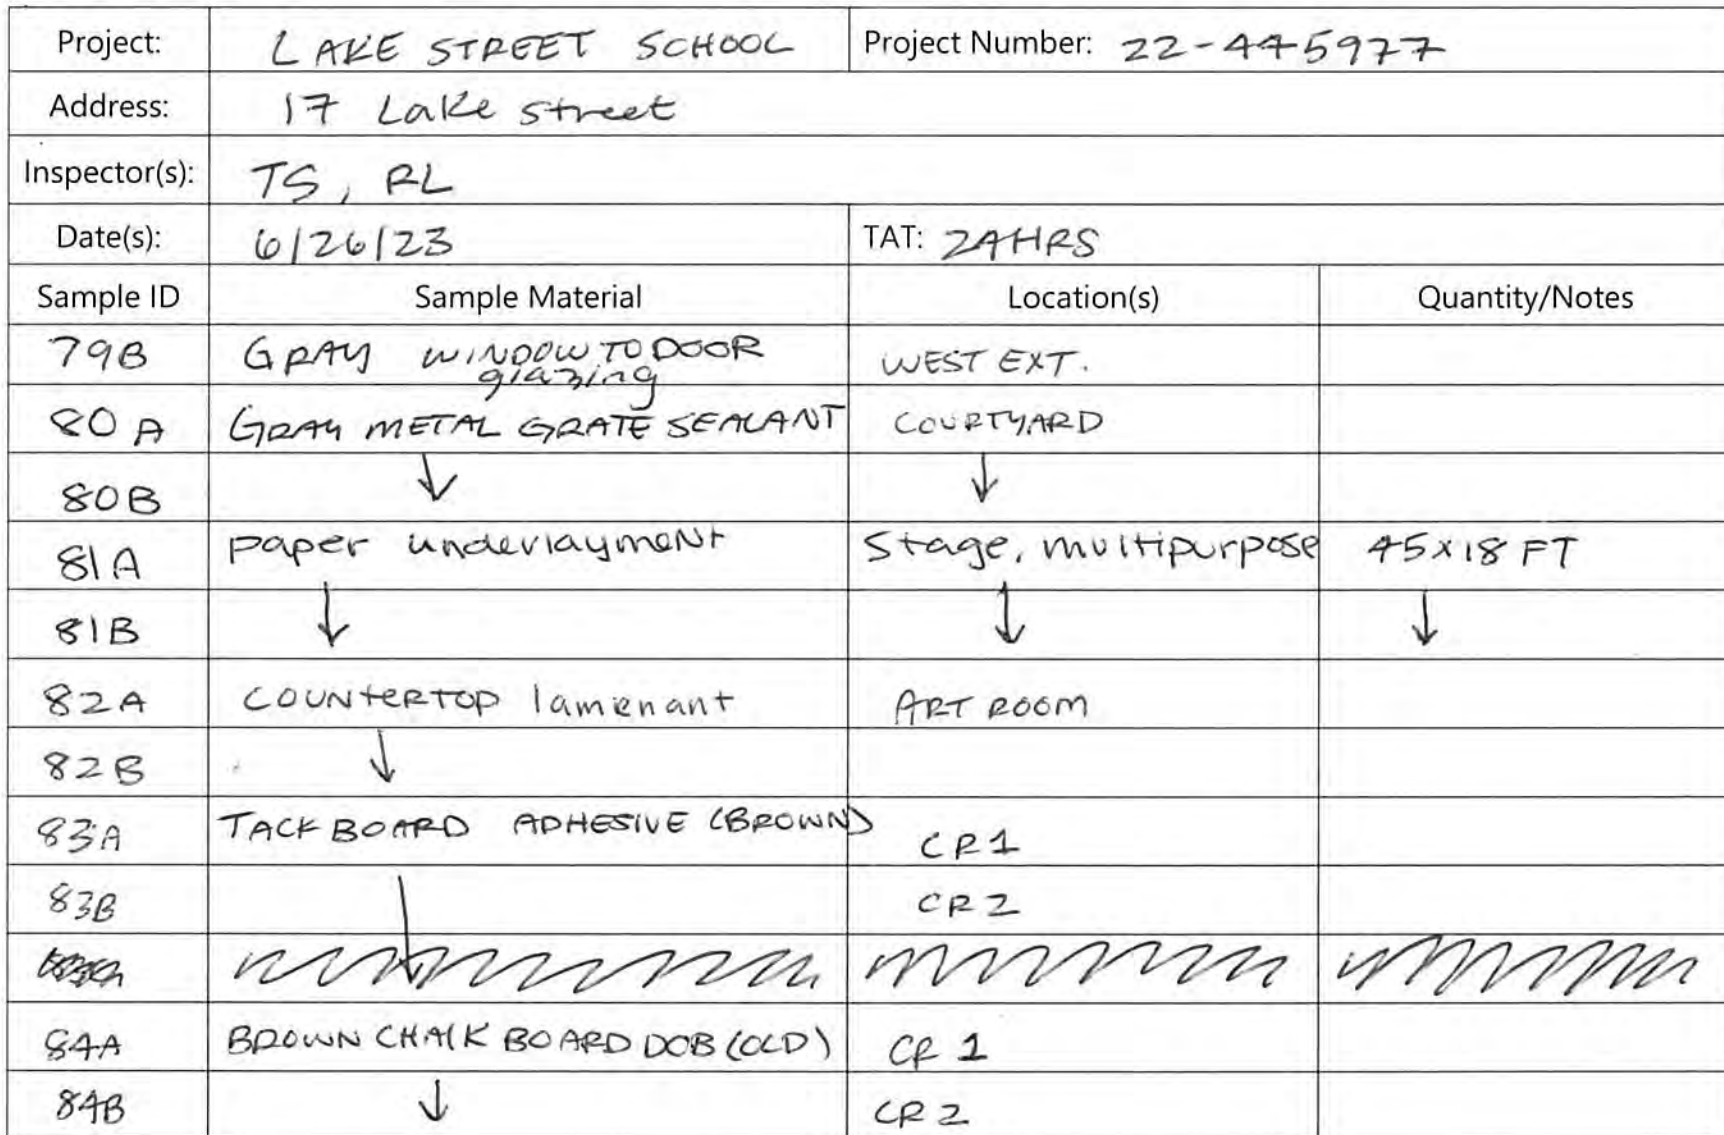 Project: LAKE STREET SCHOOL Project Number: 22-445977
Address: 17 Lake street
Inspector(s): TS, RL
Date(s): 6/26/23 TAT: 24HRS
Sample ID Sample Material Location(s) Quantity/Notes
79B GRAY WINDOW TO DOOR glazing WEST EXT.
80A GRAY METAL GRATE SEALANT COURTYARD
80B ↓ ↓
81A paper underlayment Stage, multipurpose 45x18 FT
81B ↓ ↓ ↓
82A COUNTERTOP lamenant ART ROOM
82B ↓
83A TACK BOARD ADHESIVE (BROWN) CR1
83B CR2
84A BROWN CHALK BOARD DOB (OLD) CR 1
84B ↓ CR 2